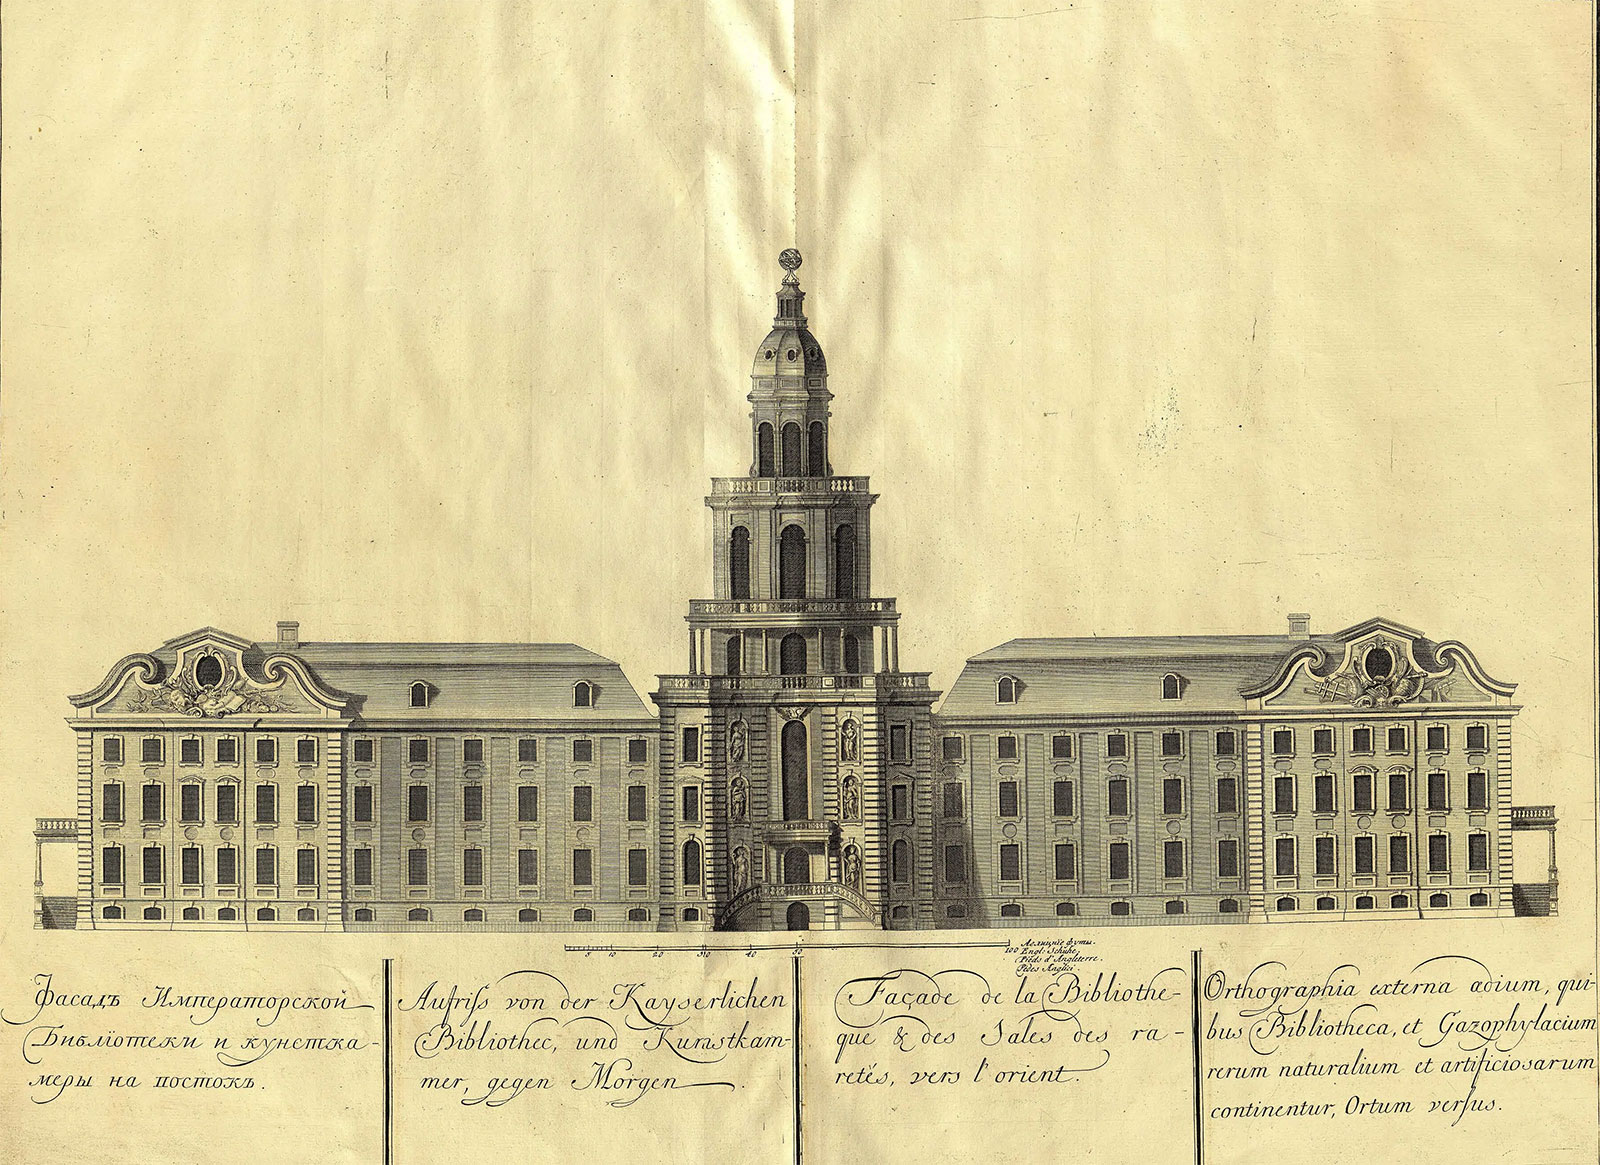 5 10 20 30 40 50 100
Аглицкïе футы.
Engl: Schuhe.
Pieds d'Angleterre.
Pedes Anglici.
Фасадъ Императорской
Библïотеки и кунстка-
меры на востокъ.
Aufriſs von der Kayserlichen
Bibliothec, und Kunstkam-
mer, gegen Morgen.
Façade de la Bibliothe-
que & des Sales des ra-
retés, vers l'orient.
Orthographia externa ædium, qui-
bus Bibliotheca, et Gazophylacium
rerum naturalium et artificiosarum
continentur, Ortum verſus.